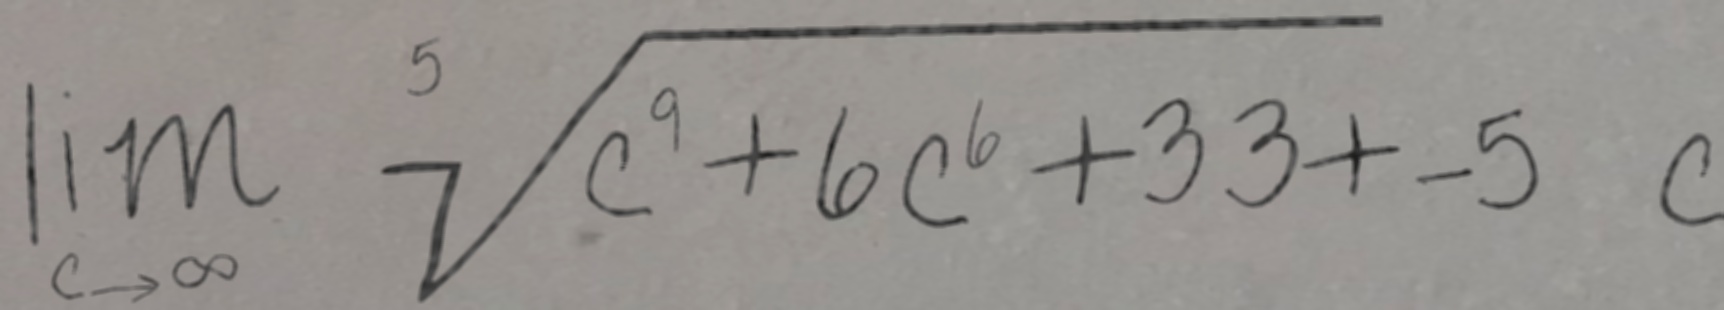 \lim_{c \to \infty} \sqrt[5]{c^9 + 6c^6 + 33} + -5 c